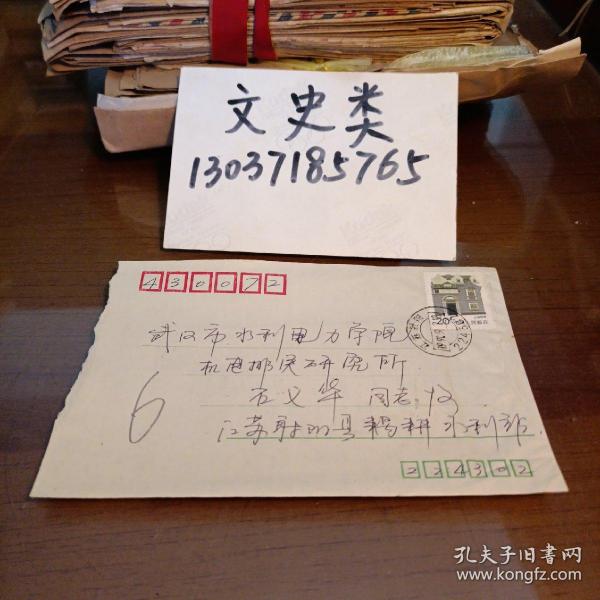 文史类
13037185765
430072
武汉市水利电力学院
机电排灌研究所
江苏射阳县耦耕水利站
224302
孔夫子旧书网
www.kongfz.com